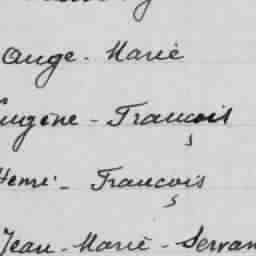 Ange - Marie
Eugène - François
Henri - François
Jean - Marie - Servan